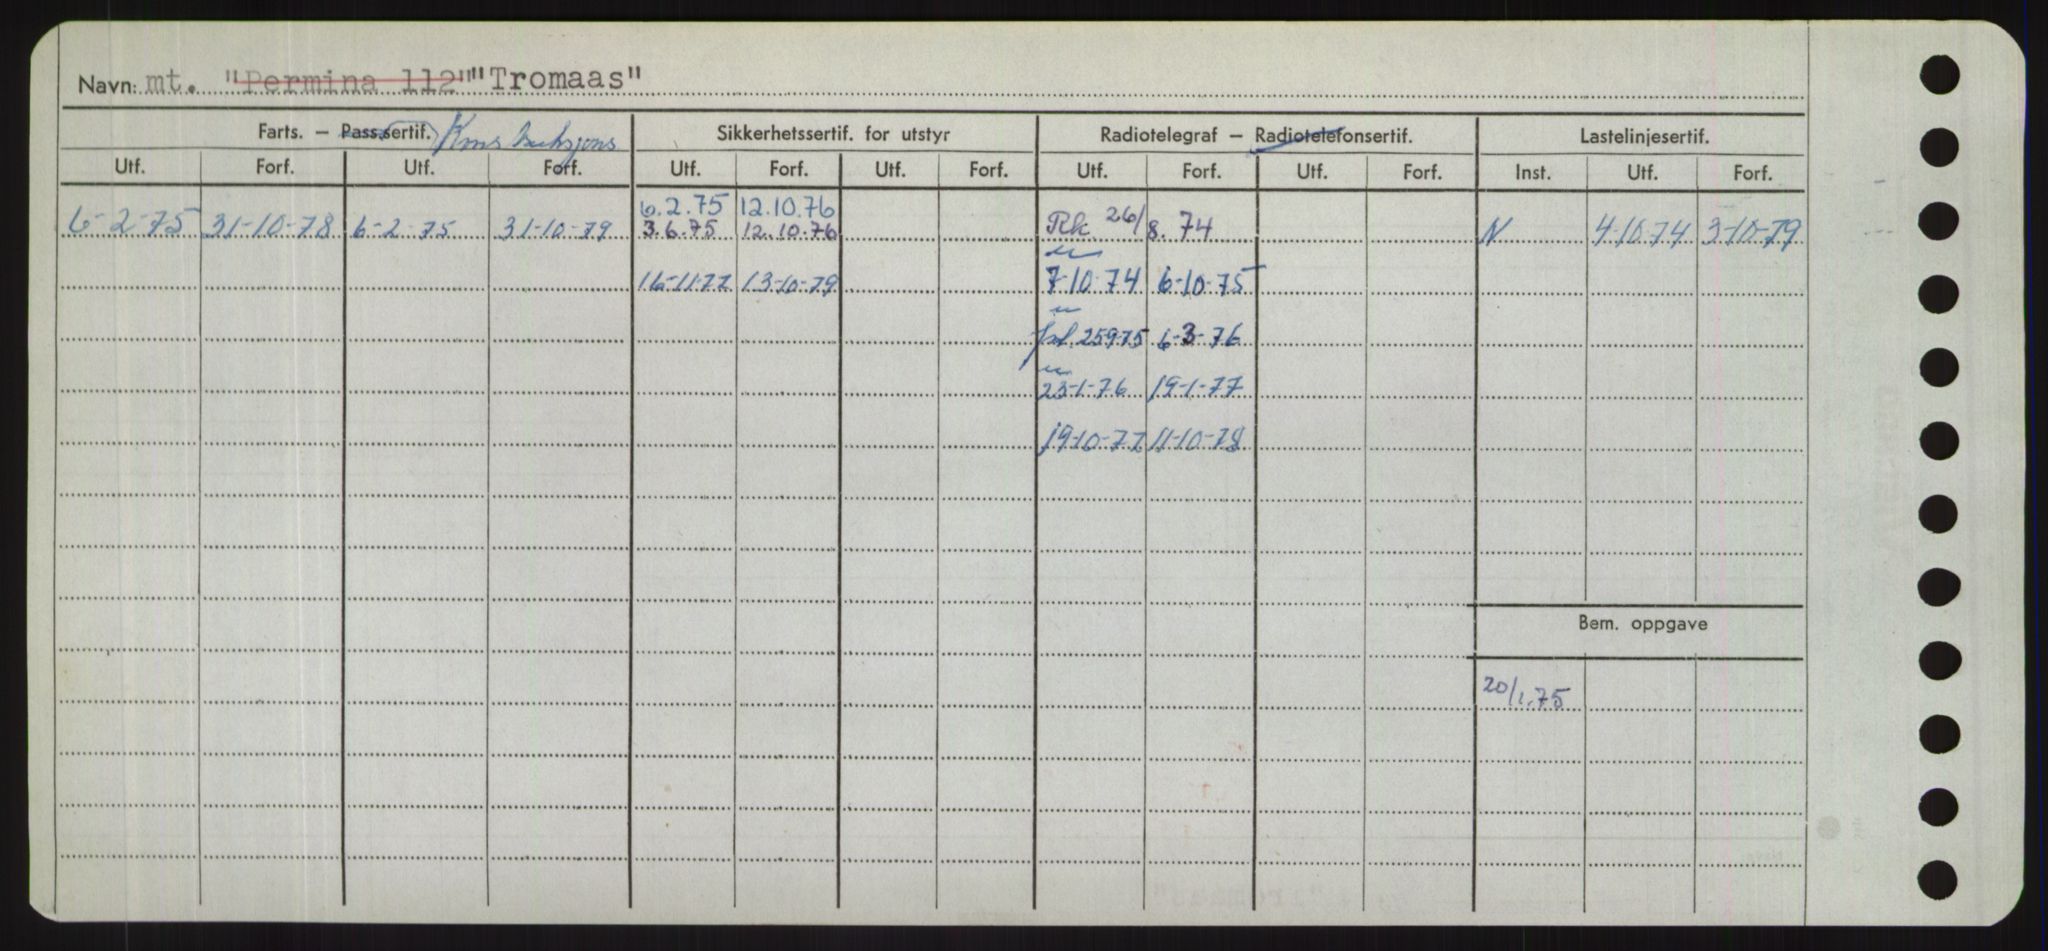 Navn: mt. "Permina 112" "Tromaas"
Farts. – Pass.sertif. Konstruksjons Sikkerhetssertif. for utstyr Radiotelegraf – Radiotelefonsertif. Lastelinjesertif.
Utf. Forf. Utf. Forf. Utf. Forf. Utf. Forf. Utf. Forf. Utf. Forf. Inst. Utf. Forf.
6.2.75 12.10.76
6-2-75 31-10-78 6-2-75 31-10-79 3.6.75 12.10.76 Rk 26/8.74 N 4-10-74 3-10-79
16-11-77 13-10-79 7-10-74 6-10-75
25-9-75 6-3-76
23-1-76 19-1-77
19-10-77 11-10-78
Bem. oppgave
20/1.75